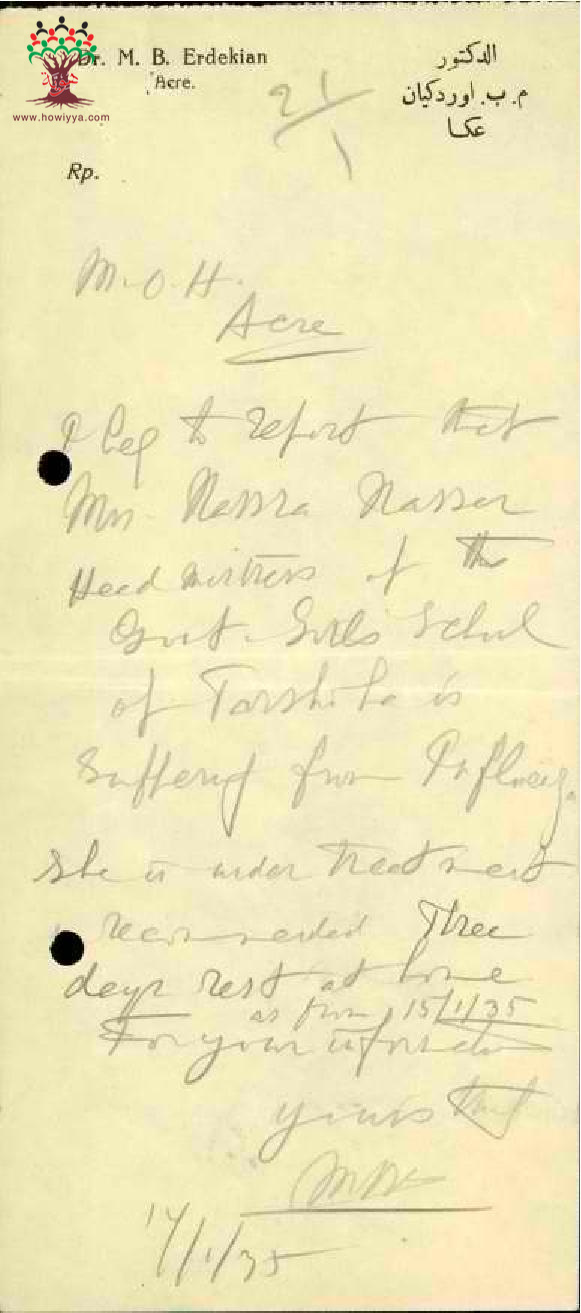 Dr. M. B. Erdekian
Acre.
الدكتور
م. ب. اوردكيان
عكا
www.howiyya.com
2/1
Rp.
M.O.H.
Acre
I beg to report that
Mrs. Nassra Nasser
Head mistress of the
Govt. Girls School
of Tarshiha is
suffering from Influenza.
She is under treatment
recommended three
days rest at home
as from 15/1/35
For your information
yours
/1/35